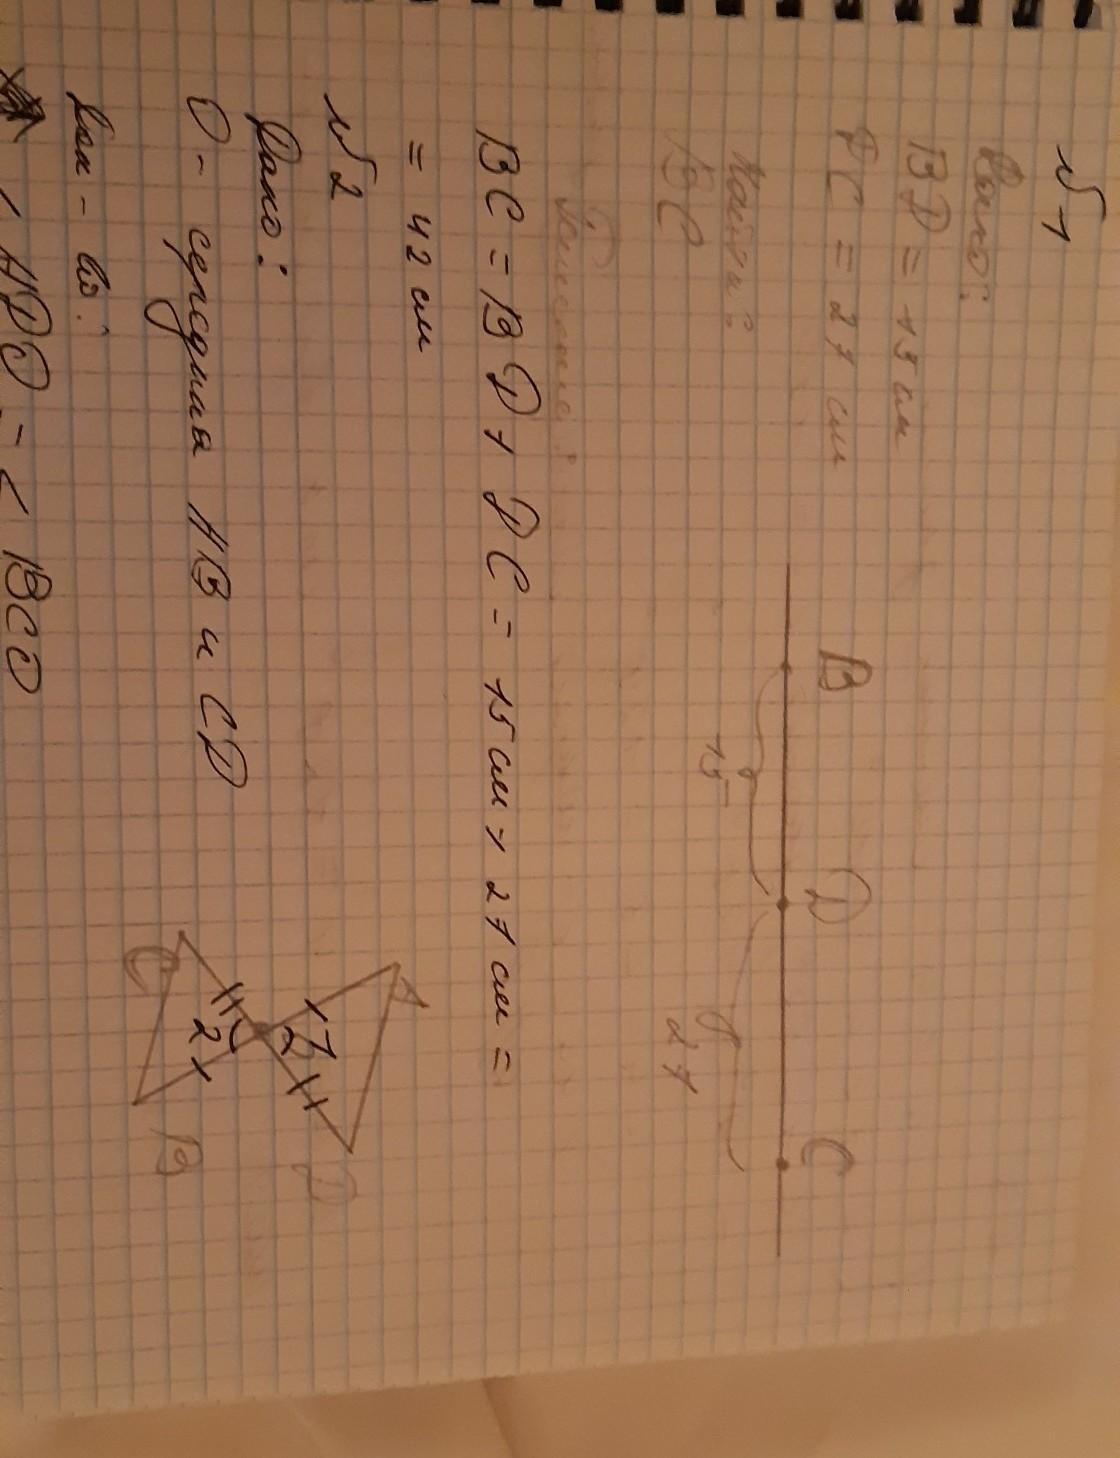 №1
Дано:
BD = 15 см
DC = 27 см
Найти:
BC
B D C
15 27
BC = BD + DC = 15 см + 27 см =
= 42 см
№2
Дано:
O - середина AB и CD
Док-во:
< ADO = < BCO
A D
1
2
2
C B